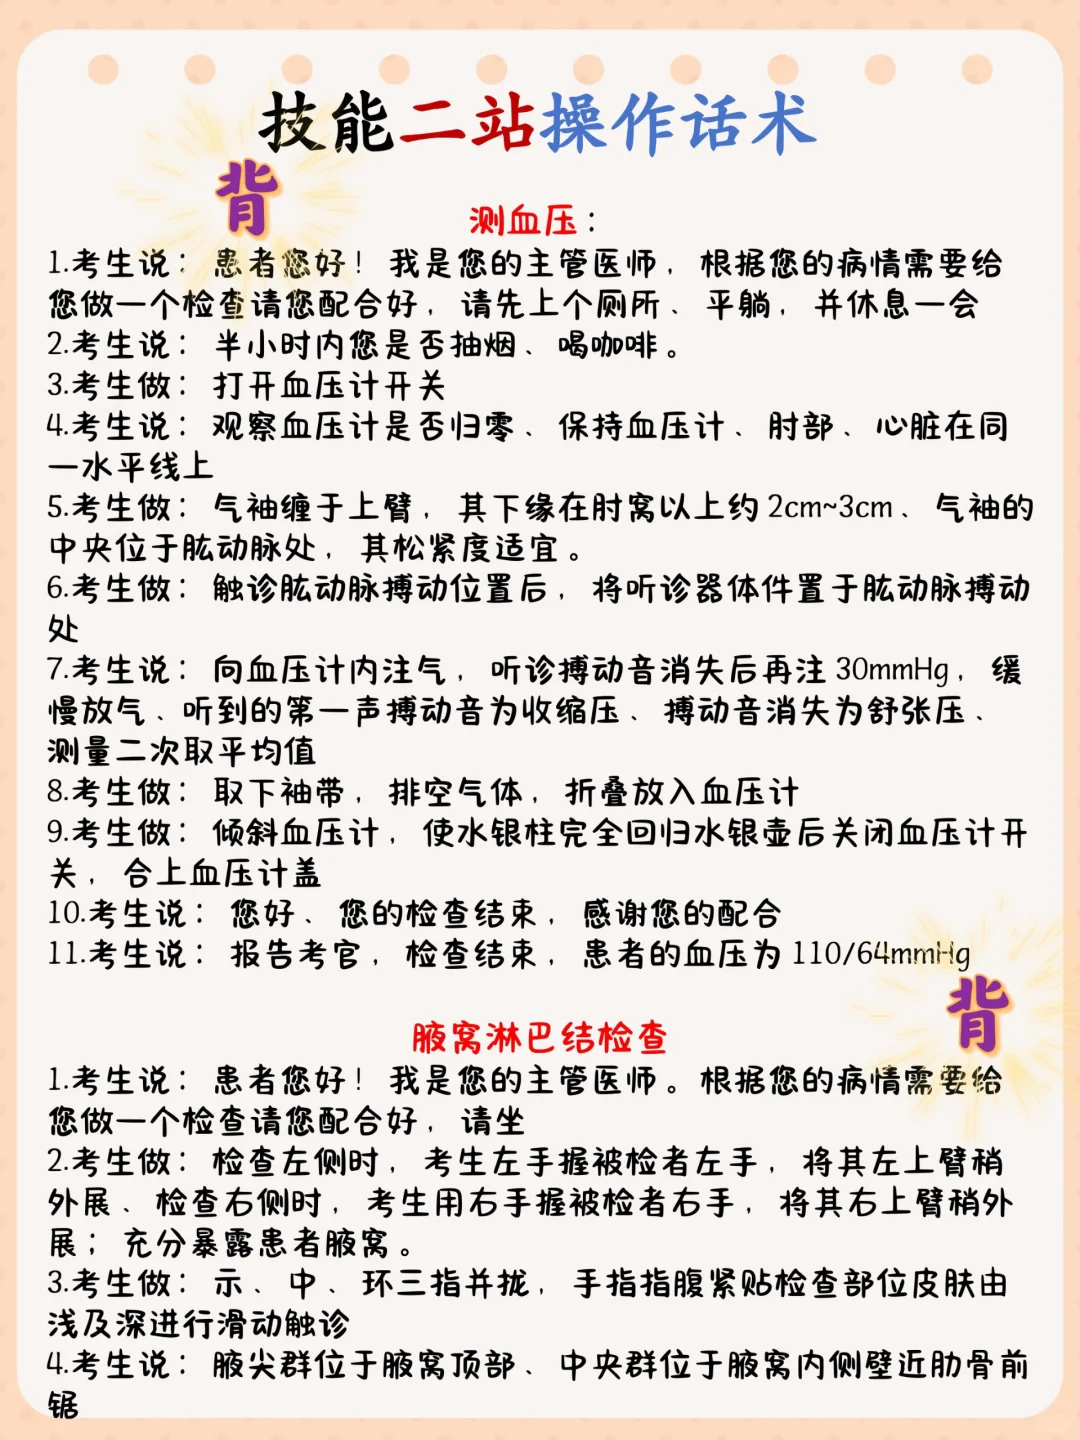 技能二站操作话术
背
测血压：
1.考生说：患者您好！我是您的主管医师，根据您的病情需要给
您做一个检查请您配合好，请先上个厕所、平躺，并休息一会
2.考生说：半小时内您是否抽烟、喝咖啡。
3.考生做：打开血压计开关
4.考生说：观察血压计是否归零、保持血压计、肘部、心脏在同
一水平线上
5.考生做：气袖缠于上臂，其下缘在肘窝以上约2cm~3cm、气袖的
中央位于肱动脉处，其松紧度适宜。
6.考生做：触诊肱动脉搏动位置后，将听诊器体件置于肱动脉搏动
处
7.考生说：向血压计内注气，听诊搏动音消失后再注30mmHg，缓
慢放气、听到的第一声搏动音为收缩压、搏动音消失为舒张压、
测量二次取平均值
8.考生做：取下袖带，排空气体，折叠放入血压计
9.考生做：倾斜血压计，使水银柱完全回归水银壶后关闭血压计开
关，合上血压计盖
10.考生说：您好、您的检查结束，感谢您的配合
11.考生说：报告考官，检查结束，患者的血压为110/64mmHg
背
腋窝淋巴结检查
1.考生说：患者您好！我是您的主管医师。根据您的病情需要给
您做一个检查请您配合好，请坐
2.考生做：检查左侧时，考生左手握被检者左手，将其左上臂稍
外展、检查右侧时，考生用右手握被检者右手，将其右上臂稍外
展；充分暴露患者腋窝。
3.考生做：示、中、环三指并拢，手指指腹紧贴检查部位皮肤由
浅及深进行滑动触诊
4.考生说：腋尖群位于腋窝顶部、中央群位于腋窝内侧壁近肋骨前
锯